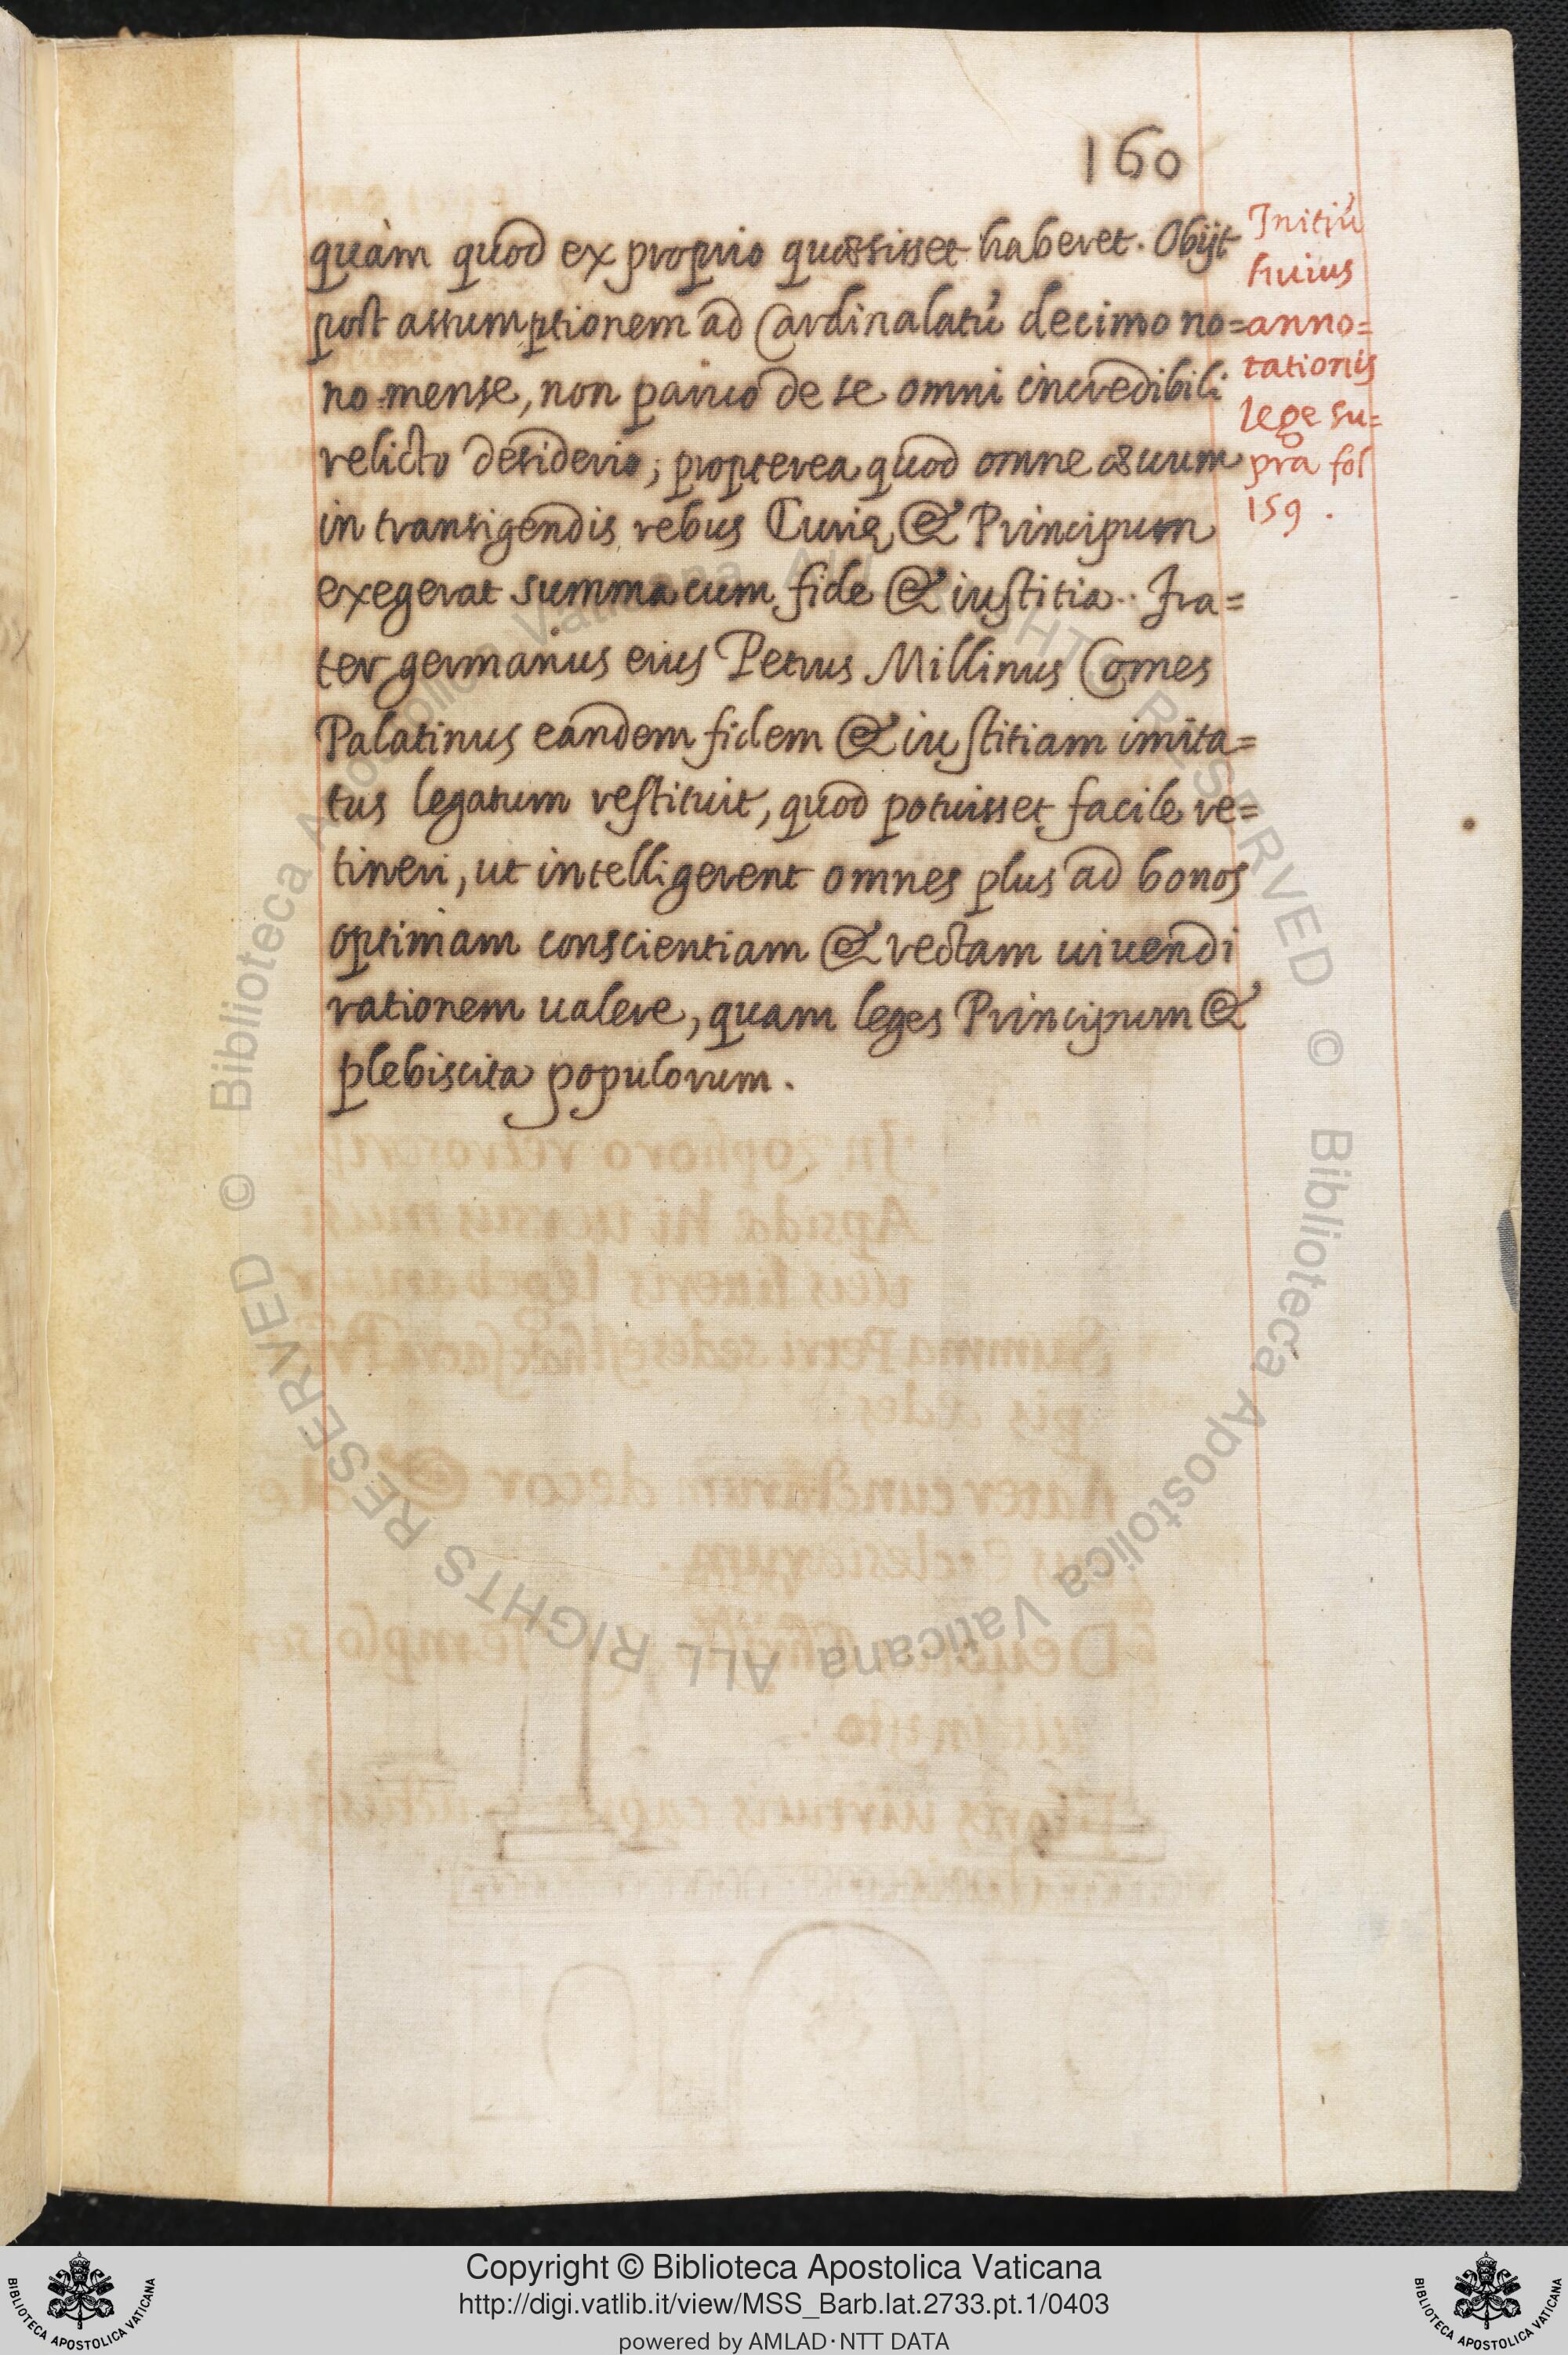 160
quàm quod ex proprio quæsisset haberet. Obijt
post assumptionem ad Cardinalatũ decimo no=
no mense, non pauco de se omni incredibili
relicto desiderio; propterea quod omne æuum
in transigendis rebus Curię & Principum
exegerat summa cum fide & iustitia. Fra=
ter germanus eius Petrus Millinus Comes
Palatinus eandem fidem & iustitiam imita=
tus legatum restituit, quod potuisset facile re=
tineri, ut intelligerent omnes plus ad bonos
optimam conscientiam & rectam uiuendi
rationem ualere, quam leges Principum &
plebiscita populorum.
Initiũ
huius
anno=
tationis
lege su=
pra fol
159.
© Biblioteca Apostolica Vaticana ALL RIGHTS RESERVED © Biblioteca Apostolica Vaticana ALL RIGHTS RESERVED
Copyright © Biblioteca Apostolica Vaticana
http://digi.vatlib.it/view/MSS_Barb.lat.2733.pt.1/0403
powered by AMLAD·NTT DATA
BIBLIOTECA APOSTOLICA VATICANA
BIBLIOTECA APOSTOLICA VATICANA